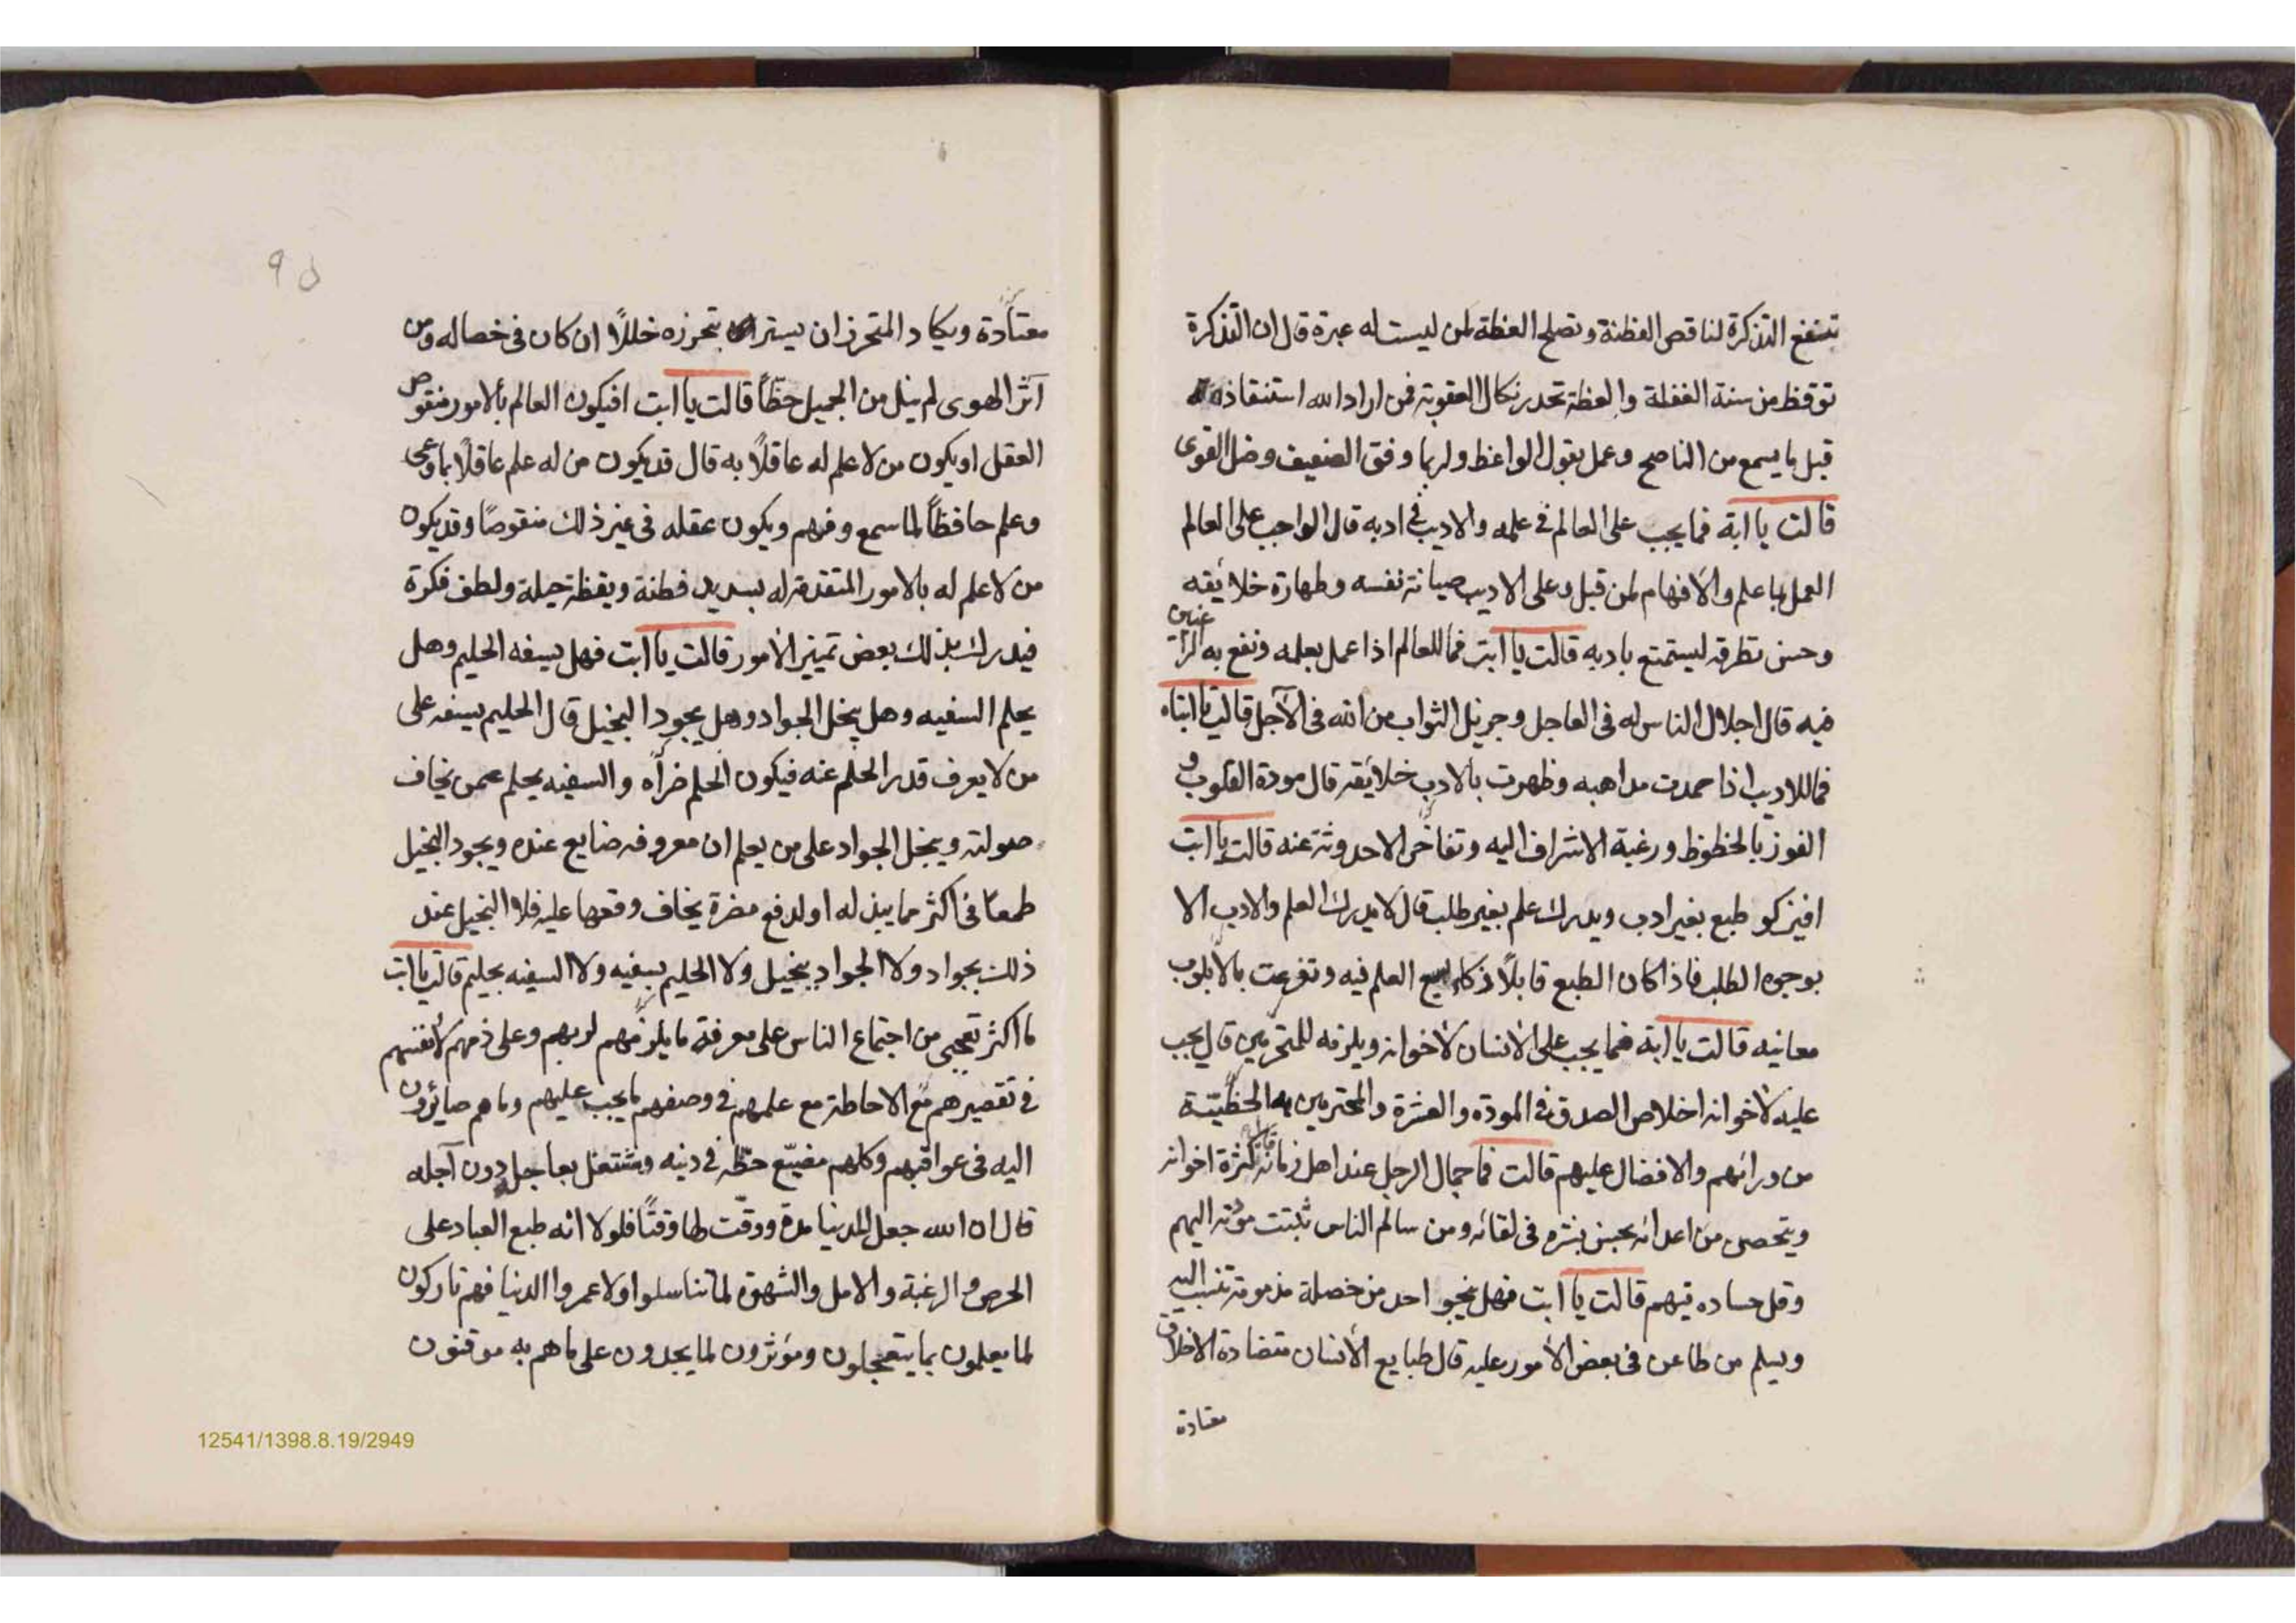 تنتفع التذكرة لناقص الفطنة وتصلح العظة لمن ليست له عبرة قال ان التذكرة
توقظ من سنة الغفلة والعظة تحدر نكال العقوبة فمن اراد الله استنقاذه
قبل ما يسمع من الناصح وعمل بقول الواعظ ولربما وفق الضعيف وضل القوى
قالت يا ابة فما يجب على العالم فى علمه والاديب فى ادبه قال الواجب على العالم
العمل بما علم والافهام لمن قبل وعلى الاديب صيانة نفسه وطهارة خلائقه
وحسن تطرقه ليستمتع بادبه قالت يا ابت فما للعالم اذا عمل بعلمه ونفع به الراغبين
فيه قال اجلال الناس له فى العاجل وجزيل الثواب من الله فى الآجل قالت يا ابتاه
فما للاديب اذا حمدت مذاهبه وظهرت بالادب خلائقه قال مودة القلوب و
الفوز بالحظوظ ورغبة الاشراف اليه وتفاخر الاحدوثة عنه قالت يا ابت
افيزكو طبع بغير ادب ويدرك علم بغير طلب قال لا يدرك العلم والادب الا
بوجوه الطلب فاذا كان الطبع قابلاً زكا العلم فيه وتفرعت
معانيه قالت يا ابة فما يجب على الانسان لاخوانه ويلزمه للمتحرمين قال يجب
عليه لاخوانه اخلاص الصدق فى المودة والعشرة والمحترمين
من ورائهم والافضال عليهم قالت فما جمال الرجل عند اهل زمانه قال كثرة اخوانه
ويتحصى من اعدائه بحسن بشره فى لقائه ومن سالم الناس ثبتت مودته اليهم
وقل حساده فيهم قالت يا ابت فهل ينجو احد من خصلة مذمومة تنسب اليه
ويسلم من طاعن فى بعض الأمور عليه قال طبايع الأنسان متضادة الاخلاق
معتادة
معتادة ويكاد المتحرز ان يستر بتحرزه خللاً ان كان فى خصاله ومن
آثر الهوى لم ينل من الجميل حظّاً قالت يا ابت افيكون العالم بالامور منقوص
العقل او يكون من لا علم له عاقلاً به قال قد يكون من له علم عاقلاً بما وعى
وعلم حافظاً لما سمع وفهم ويكون عقله فى غير ذلك منقوصًا وقد يكون
من لا علم له بالامور المتقدمة له بسديد فطنة ويقظة حيلة ولطف فكرة
فيدرك بذلك بعض تمييز الأمور قالت يا ابت فهل يسفه الحليم وهل
يحلم السفيه وهل يبخل الجواد وهل يجود البخيل قال الحليم يسفه على
من لا يعرف قدر الحلم عنه فيكون الحلم ضرأه والسفيه يحلم عمن يخاف
صولته ويبخل الجواد على من يعلم ان معروفه ضايع عنده ويجود البخيل
طمعًا فى اكثر مما يبذله او لدفع مضرة يخاف وقعها عليه فلا البخيل عند
ذلك بجواد ولا الجواد ببخيل ولا الحليم بسفيه ولا السفيه بحليم قالت يا ابت
ما اكثر تعجبى من اجتماع الناس على معرفة ما يلزمهم لربهم وعلى ذمهم لأنفسهم
فى تقصيرهم مع الاحاطة مع علمهم فى وصفهم ما يجب عليهم وما هم صائرون
اليه فى عواقبهم وكلهم مضيّع حظّه فى دينه ومشتغل بعاجله دون آجله
قال ان الله جعل للدنيا مدة ووقّت لها وقتًا فلولا انه طبع العباد على
الحرص والرغبة والامل والشهوة لما تناسلوا ولا عمروا الدنيا فهم تاركون
لما يعلمون بما يتعجلون ومؤثرون لما يجدون على ما هم به موقنون
12541/1398.8.19/2949